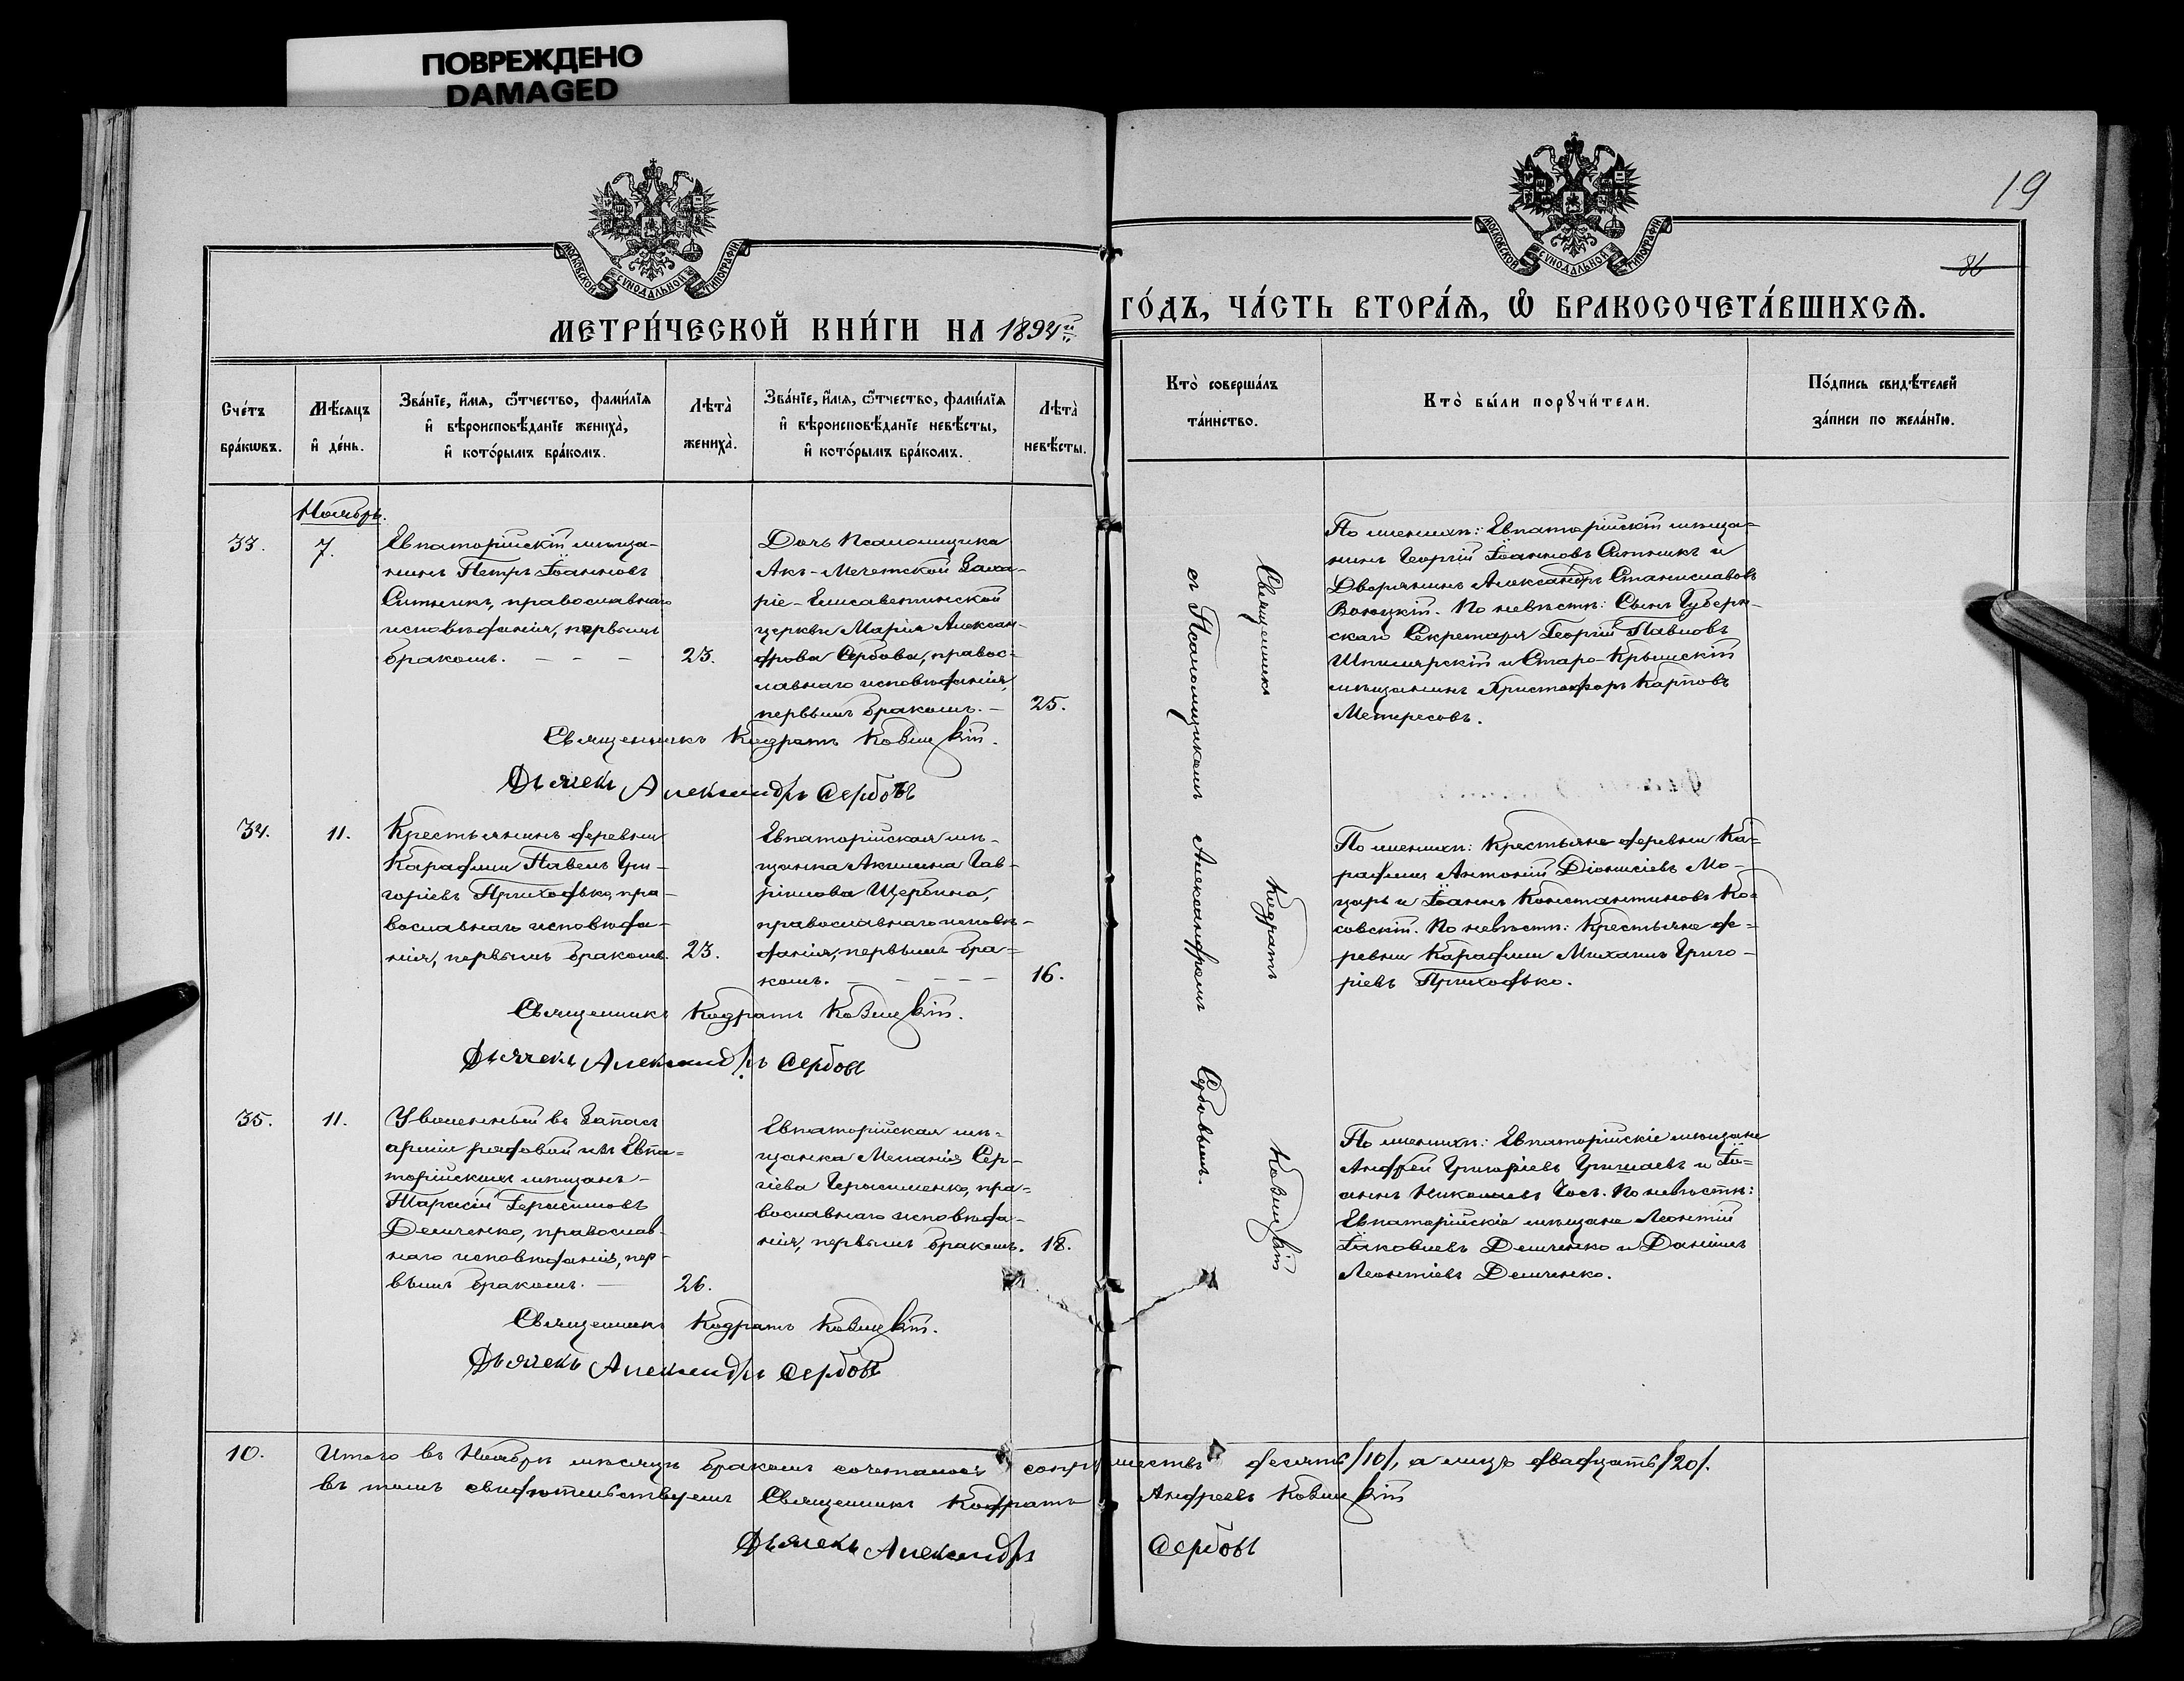 ПОВРЕЖДЕНО
DAMAGED
МОСКОВСКОЙ СѴНОДАЛЬНОЙ ТИПОГРАФІИ
МОСКОВСКОЙ СѴНОДАЛЬНОЙ ТИПОГРАФІИ
19
86
МЕТРИ́ЧЕСКОЙ КНИ́ГИ НА 1894й
ГО́ДЪ, ЧА́СТЬ ВТОРА́Ѧ, Ѽ БРАКОСОЧЕТА́ВШИХСѦ.
Сче́тъ бра́кѡвъ.
Мѣ́сяцъ и҆ де́нь.
Зва́нїе, и҆́мя, ѻ҆́тчество, фами́лїя
и҆ вѣроисповѣ́данїе жениха̀,
и҆ кото́рымъ бра́комъ.
Лѣта̀ жениха̀.
Зва́нїе, и҆́мя, ѻ҆́тчество, фами́лїя
и҆ вѣроисповѣ́данїе невѣ́сты,
и҆ кото́рымъ бра́комъ.
Лѣта̀ невѣ́сты.
Кто̀ соверша́лъ
та́инство.
Кто̀ бы́ли порꙋчи́тели.
По́дпись свидѣ́телей
за́писи по жела́нїю.
Ноябрь.
33.
7.
Евпаторійскій мѣща-
нинъ Петръ Іоанновъ
Ситникъ, православнаго
исповѣданія, первымъ
бракомъ. - - -
23.
Дочь Псаломщика
Акъ-Мечетской Заха-
ріе-Елисаветинской
церкви Марія Алексан-
дрова Сербова, правос-
лавнаго исповѣданія,
первымъ бракомъ. -
25.
Священникъ Кодратъ
Дьячекъ Александръ Сербовъ
По женихѣ: Евпаторійскій мѣща=
нинъ Георгій Іоанновъ Ситникъ и
Дворянинъ Александръ Станиславовъ
По невѣстѣ: Сынъ Губерн-
скаго Секретаря Георгій Павловъ
и Старо-Крымскій
мѣщанинъ Христофоръ Карповъ
Метересовъ.
34.
11.
Крестьянинъ деревни
Караджи Павелъ Гри-
горіевъ Приходько, пра-
вославнаго исповѣда-
нія, первымъ бракомъ.
23.
Евпаторійская мѣ-
щанка Акилина Гав-
ріилова Щербина,
православнаго исповѣ-
данія, первымъ бра=
комъ. - - - -
16.
Священникъ Кодратъ
Дьячекъ Александръ Сербовъ
По женихѣ: Крестьяне деревни Ка=
раджи Антоній Діонисіевъ Мо-
царь и Іоаннъ Константиновъ Ко=
совскій. По невѣстѣ: Крестьяне де=
ревни Караджи Михаилъ Григо-
ріевъ Приходько.
35.
11.
Уволенный въ Запасъ
арміи рядовой изъ Евпа=
торійскихъ мѣщанъ -
Тарасій Герасимовъ
Демченко, православ-
наго исповѣданія, пер-
вымъ бракомъ. -
26.
Евпаторійская мѣ-
щанка Меланія Сер-
гіева Герасименко, пра-
вославнаго исповѣда-
нія, первымъ бракомъ.
18.
Священникъ Кодратъ
Дьячекъ Александръ Сербовъ
По женихѣ: Евпаторійскіе мѣщане
Андрей Григоріевъ и Іо=
аннъ Николаевъ По невѣстѣ:
Евпаторійскіе мѣщане Леонтій
Іаковлевъ Демченко и Даніилъ
Леонтіевъ Демченко.
Священникъ Кодратъ
съ Псаломщикомъ Александромъ Сербовымъ.
10.
Итого въ Ноябрѣ мѣсяцѣ бракомъ сочеталось супружествъ десять /10/, а лицъ двадцать /20/.
въ томъ свидѣтельствуемъ Священникъ Кодратъ Андреевъ
Дьячекъ Александръ Сербовъ